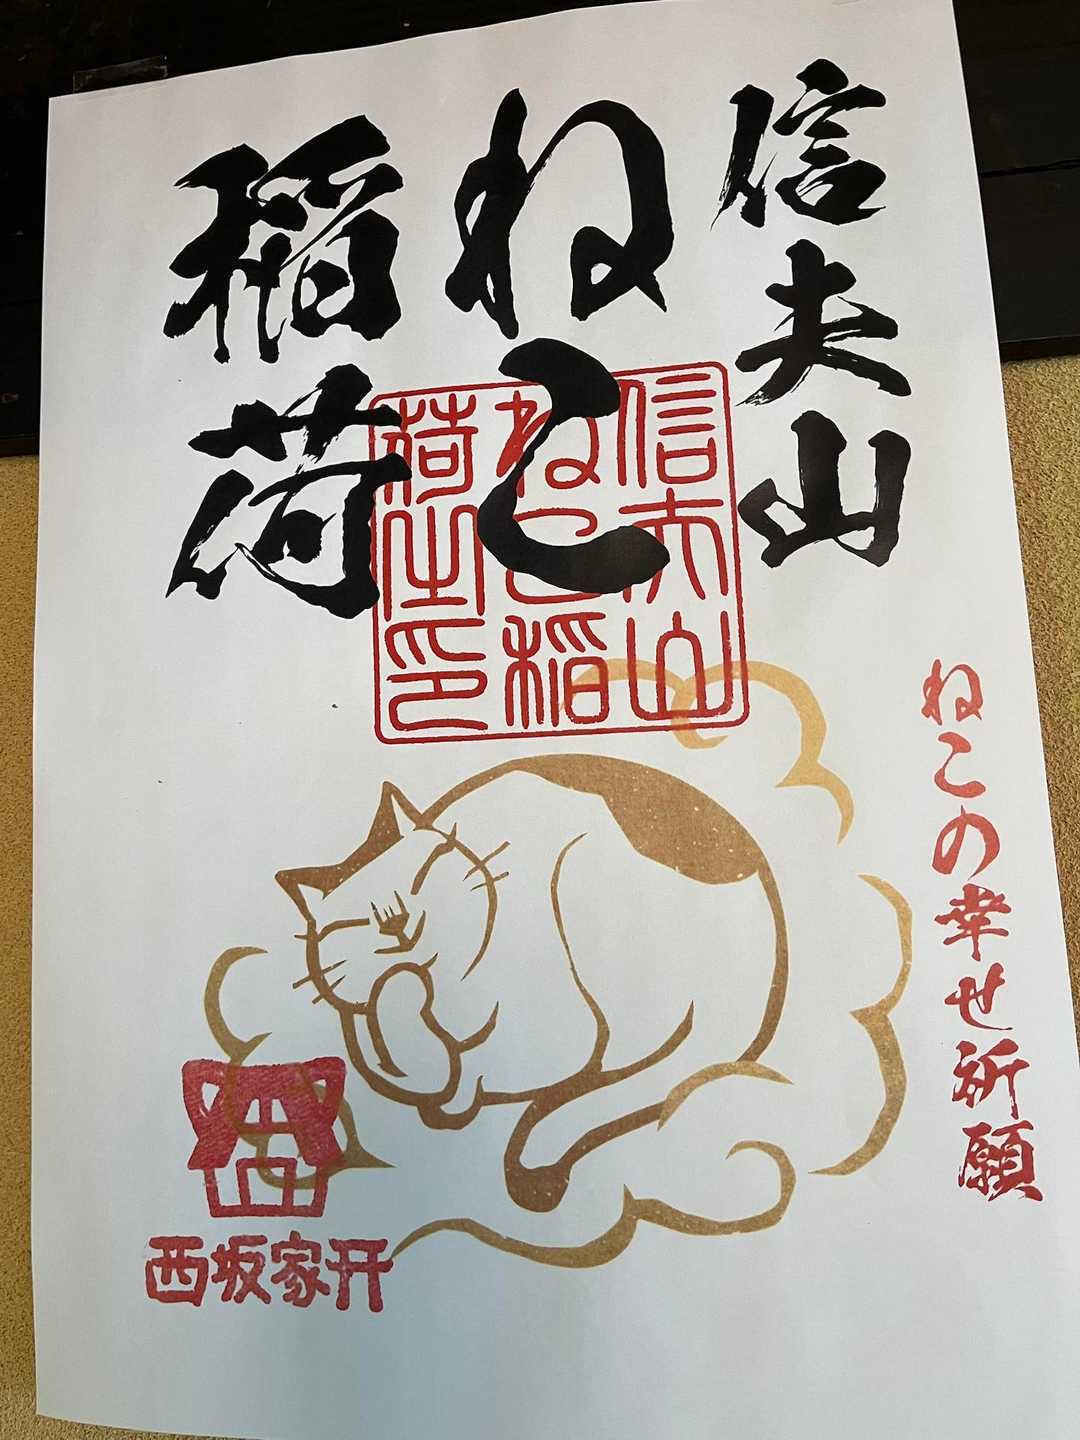 信夫山
ねこ
稲荷
信夫山
ねこ稲
荷之印
ねこの幸せ祈願
西坂家开